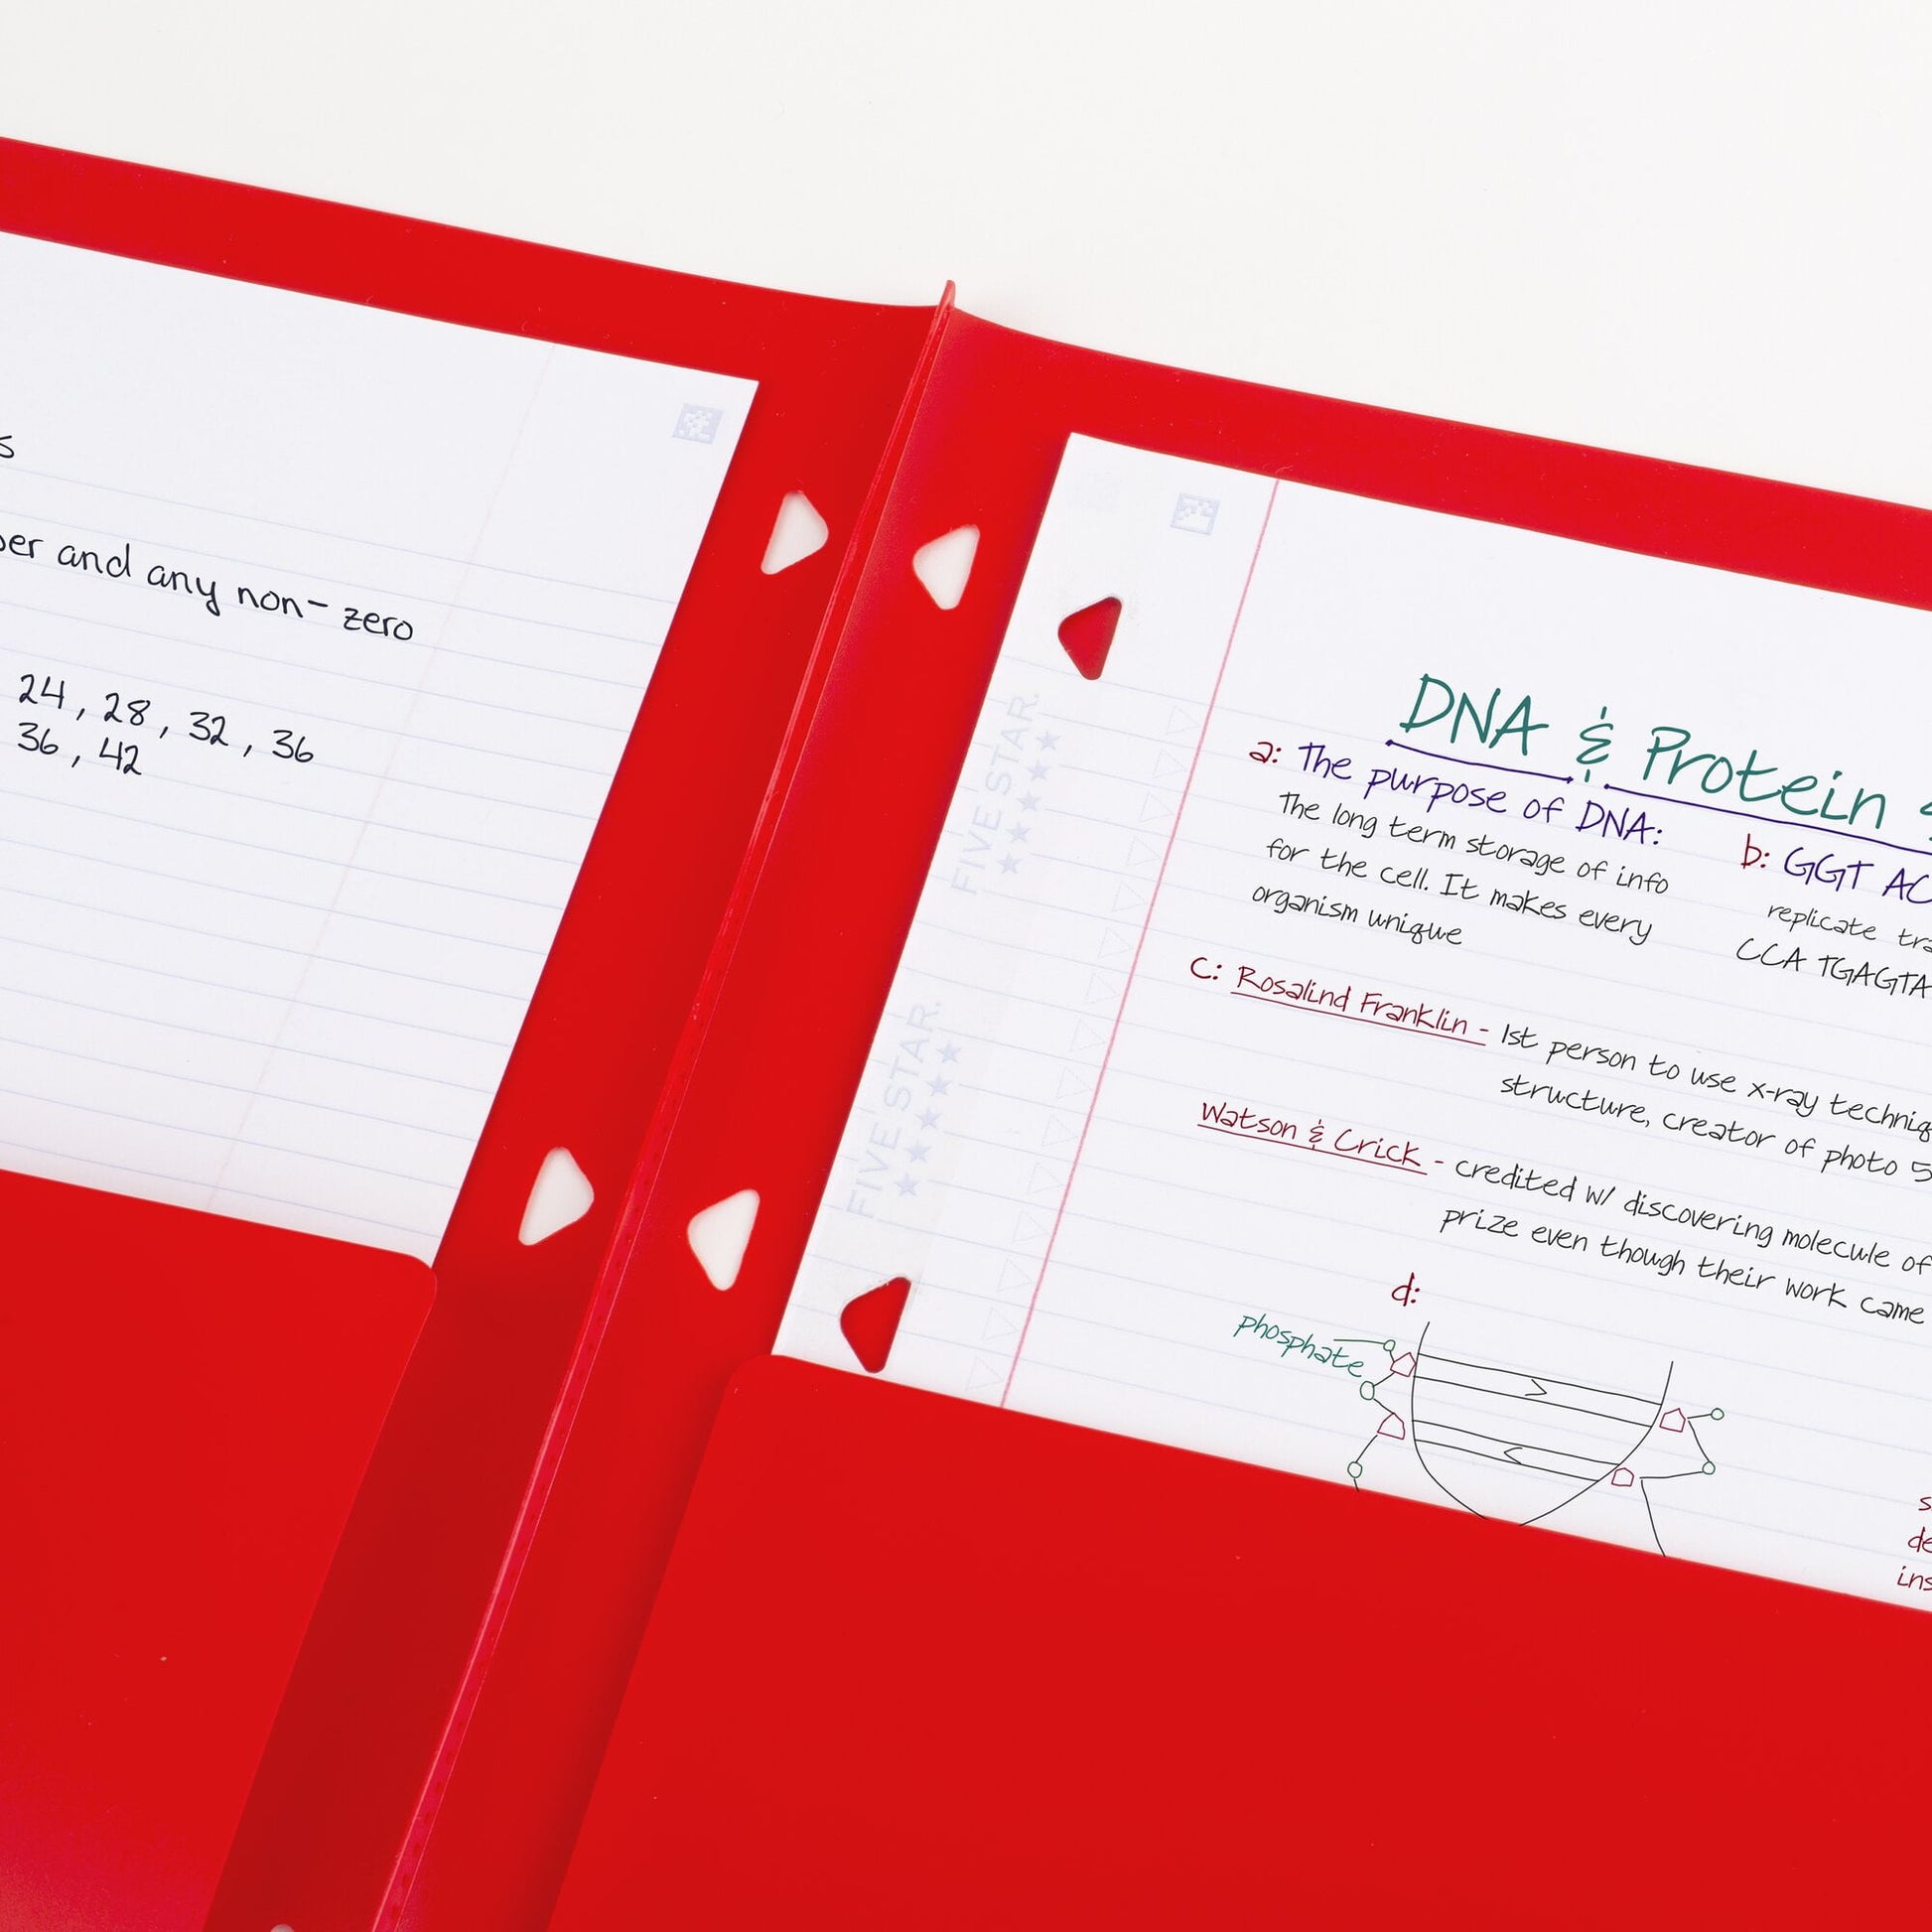 s
er and any non-zero
24, 28, 32, 36
36, 42
FIVE STAR.
FIVE STAR.
DNA & Protein
a: The purpose of DNA:
The long term storage of info
for the cell. It makes every
organism unique
b: GGT AC
replicate tra
CCA TGAGTA
c: Rosalind Franklin - 1st person to use x-ray techniq
structure, creator of photo 5
Watson & Crick - credited w/ discovering molecule of
prize even though their work came
d:
phosphate
s
de
ins